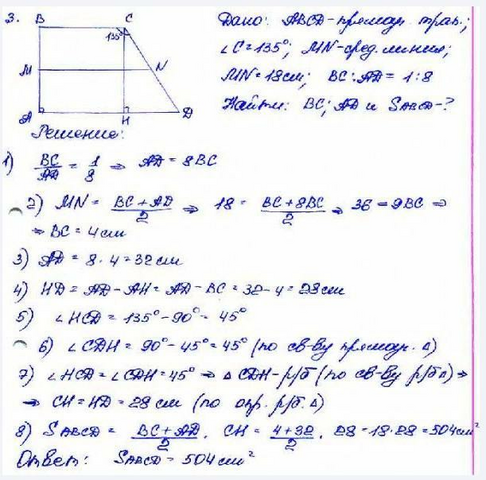 3.
B C
135°
M N
A H D
Дано: ABCD-прямоуг. трап.;
∠C=135°; MN-сред. линия;
MN=18см; BC:AD = 1:8
Найти: BC; AD и SABCD-?
Решение:
1) BC/AD = 1/8 ⇒ AD = 8BC
2) MN = (BC+AD)/2 ⇒ 18 = (BC+8BC)/2 ⇒ 36=9BC ⇒
⇒ BC = 4см
3) AD = 8·4=32см
4) HD = AD-AH=AD-BC=32-4=28см
5) ∠HCD=135°-90°=45°
6) ∠CDH = 90°-45°=45° (по св-ву прямоуг. Δ)
7) ∠HCD=∠CDH=45° ⇒ ΔCDH-р/б (по св-ву р/б Δ) ⇒
⇒ CH=HD=28 см (по опр. р/б. Δ)
8) SABCD = (BC+AD)/2 · CH = (4+32)/2 · 28=18·28=504см²
Ответ: SABCD=504см²